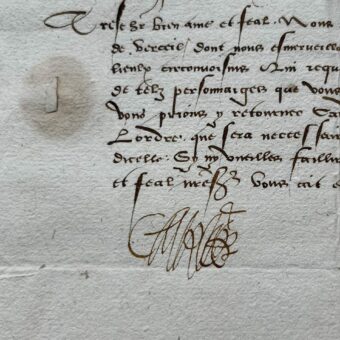 Treschr bien ame et feal. Nous
de Verceil, dont nous esmerveillo
lieulx circonvoisins
de telz personnaiges que vous
vous prions y retourner
Lordre que sera necessai
dicelle. Sy ny vueilles failli
et feal nre Sr Vous ait e